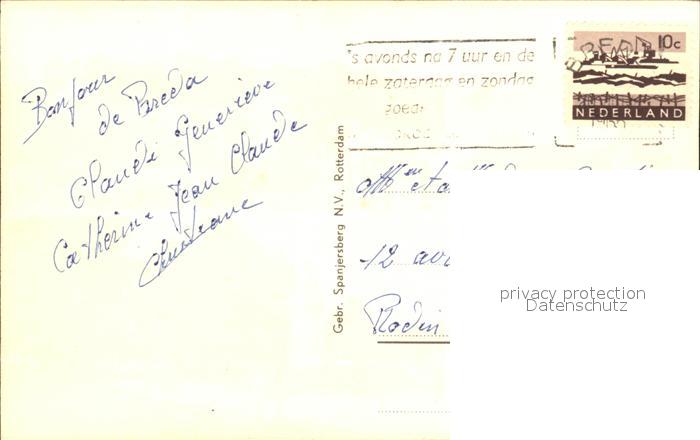 Bonjour
de Breda
Claude Geneviève
Catherine Jean Claude
Christiane
's avonds na 7 uur en de
hele zaterdag en zondag
goed
BREDA
10c
NEDERLAND
Gebr. Spanjersberg N.V., Rotterdam
et
12
Rodin
privacy protection
Datenschutz